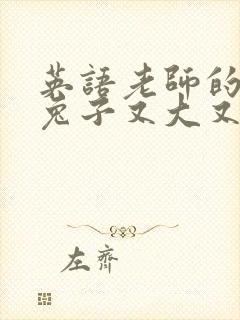 英語老師的
兔子又大又
左齊